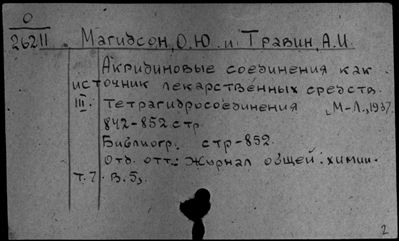 О
26211. Магидсон, О.Ю. и Травин, А.И.
Акридиновые соединения как
источник лекарственных средств.
III. Тетрагидросоединения М-Л., 1937.
842-852 стр.
Библиогр. стр-852.
Отд. отт.: Журнал общей химии.
т.7. в.5,
2